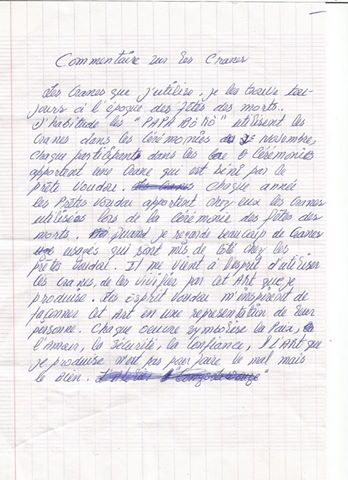 Commentaire sur les Cranes
Les Cranes que j'utilise, je les trouve tou-
jours à l'époque des fêtes des morts.
D'habitude les "PAPA BÒKÒ" utilisent les
Cranes dans les Cérémonies 2 Novembre,
Chaque participants dans les Cérémonies
apportent une Crane qui est béni par le
prête Voudou. Chaque année
les Prêtes Voudou apportent chez eux les Cranes
utilisées lors de la Cérémonie des fêtes des
morts. Quand je regarde beaucoup de Cranes
usagés qui sont mis de coté chez les
prêtes Voudou. Il me vient à l'esprit d'utiliser
les Cranes, de les vivifier par cet Art que je
produise. Les esprit Voudou m'inspirent de
façonner cet Art en une représentation de leur
personne. Chaque oeuvre symbolise la Paix,
l'Amour, la Sécurité, la Confiance, l'Art que
je produise n'est pas pour faire le mal mais
le Bien.